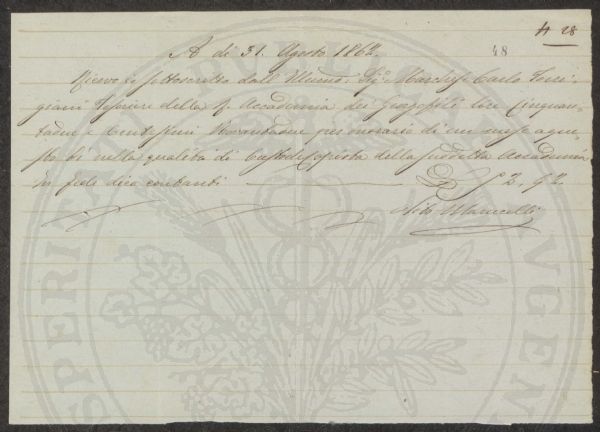 4 28
48
A dì 31. Agosto 1862.
Ricevo io sottoscritto dall' Illmo. Sig. Marchese Carlo Torri
giani Tesoriere della R. Accademia dei Georgofili Lire Cinquan
tadue e Centesimi Novantadue per onorario di un mese a
tutto nella qualità di Custode della suddetta Accademia
in fede dico contanti £ 52. 92
Marucelli